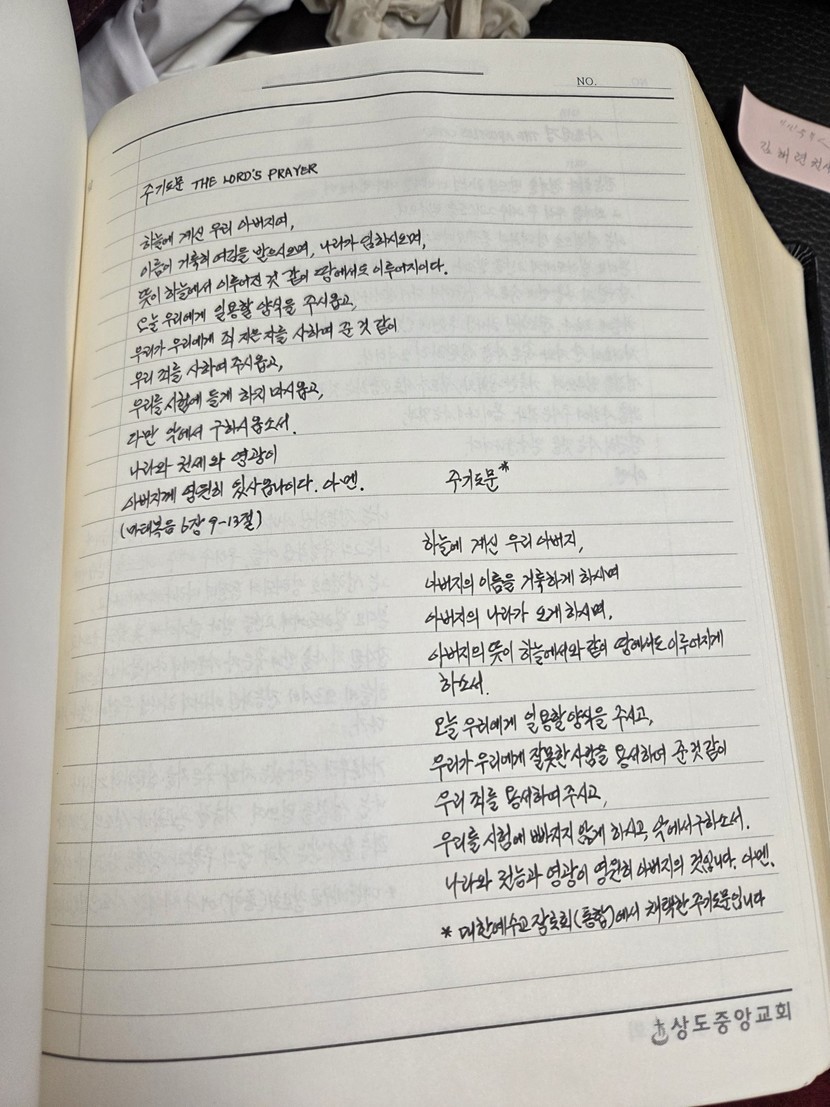 NO.
주기도문 THE LORD'S PRAYER
하늘에 계신 우리 아버지여,
이름이 거룩히 여김을 받으시오며, 나라가 임하시오며,
뜻이 하늘에서 이루어진 것 같이 땅에서도 이루어지이다.
오늘 우리에게 일용할 양식을 주시옵고,
우리가 우리에게 죄 지은 자를 사하여 준 것 같이
우리 죄를 사하여 주시옵고,
우리를 시험에 들게 하지 마시옵고,
다만 악에서 구하시옵소서.
나라와 권세와 영광이
아버지께 영원히 있사옵나이다. 아멘.
(마태복음 6장 9-13절)
주기도문*
하늘에 계신 우리 아버지,
아버지의 이름을 거룩하게 하시며
아버지의 나라가 오게 하시며,
아버지의 뜻이 하늘에서와 같이 땅에서도 이루어지게
하소서.
오늘 우리에게 일용할 양식을 주시고,
우리가 우리에게 잘못한 사람을 용서하여 준 것 같이
우리 죄를 용서하여 주시고,
우리를 시험에 빠지지 않게 하시고, 악에서 구하소서.
나라와 권능과 영광이 영원히 아버지의 것입니다. 아멘.
* 대한예수교 장로회(통합)에서 채택한 주기도문입니다
상도중앙교회
김해련